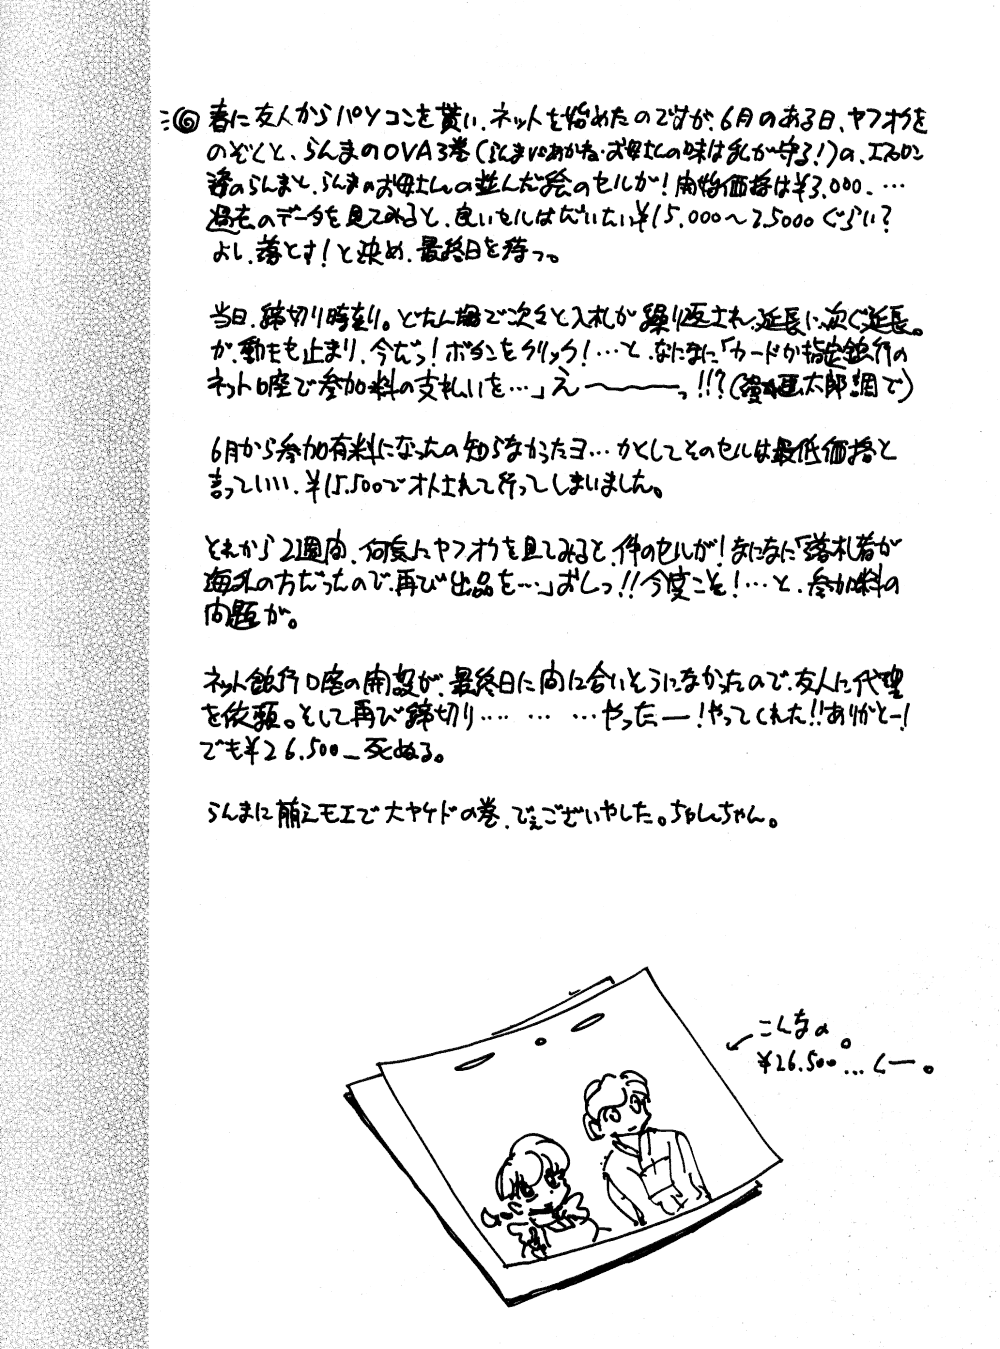 春に友人からパソコンを貰い、ネットを始めたのですが、6月のある日、ヤフオクを
のぞくと、らんまのOVA3巻(らんまvsあかね・お母さんの味は私が守る!)の、エプロン
姿のらんまと、らんまのお母さんの並んだ絵のセルが!開始価格は¥3,000、…
過去のデータを見てみると、良いセルはだいたい¥15,000〜25000ぐらい?
よし、落とす!と決め、最終日を待つ。
当日、締切り時刻。どたん場で次々と入札が繰り返され、延長に次ぐ延長。
が、動きも止まり、今だっ!ボタンをクリック!…と、なになに「カードか指定銀行の
ネット口座で参加料の支払いを…」え〜〜っ!!?(漫☆画太郎調で)
6月から参加有料になったの知らなかったヨ…かくしてそのセルは最低価格と
言っていい、¥15,500でオトされて行ってしまいました。
それから2週間、何気にヤフオクを見てみると、件のセルが!なになに「落札者が
海外の方だったので、再び出品を…」おしっ!!今度こそ!…と、参加料の
問題が。
ネット銀行口座の開設が、最終日に間に合いそうになかったので、友人に代理
を依頼。そして再び締切り…… … …やったー!やってくれた!!ありがとー!
でも¥26,500_死ぬる。
らんまに萌えモエで大ヤケドの巻、でぇございやした。ちゃんちゃん。
こんなの。
¥26,500…くー。